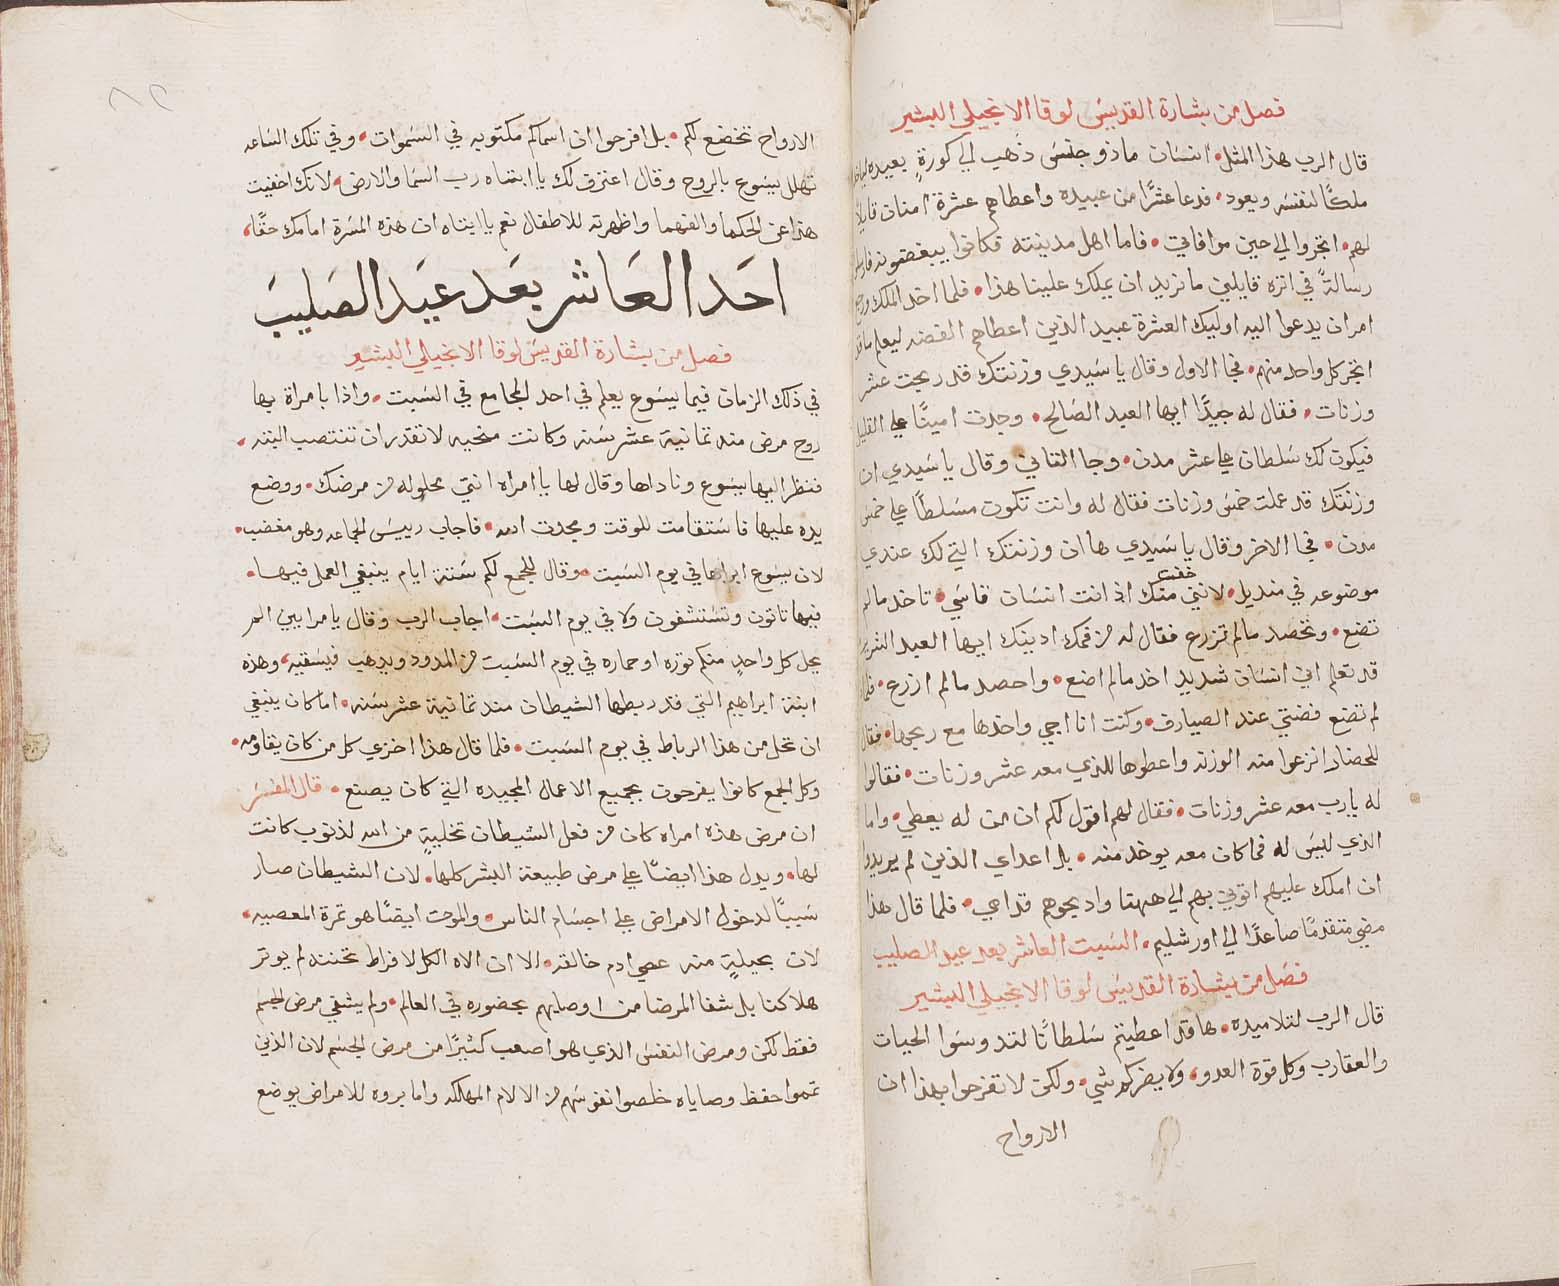 فصل من بشارة القديس لوقا الانجيلي البشير
قال الرب هذا المثل • انسان ما ذو جنس ذهب الي كورةٍ بعيده لياخذ
ملكًا لنفسه ويعود • فدعا عشرًا من عبيده واعطاهم عشرة امنان قايلًا
لهم • اتجروا الي حين موافاتي • فاما اهل مدينته فكانوا يبغضونه فارسلوا
رسالةً في اثره قايلين ما نريد ان يملك علينا هذا • فلما اخد الملك ورجع
امر ان يدعوا اليه اوليك العشرة عبيد الذين اعطاهم الفضه ليعلم ما قد
اتجر كل واحد منهم • فجا الاول وقال يا سيدي وزنتك قد ربحت عشر
وزنات • فقال له جيدًا ايها العبد الصالح • وجدت امينًا علي القليل
فيكون لك سلطان علي عشر مدن • وجا الثاني وقال يا سيدي ان
وزنتك قد عملت خمس وزنات فقال له وانت تكون مسلطًا علي خمس
مدن • فجا الاخر وقال يا سيدي ها ان وزنتك التي لك عندي
موضوعه في منديل • لانني خفت منك اذ انت انسان قاسي • تاخد ما لم
تضع • وتحصد ما لم تزرع فقال له من فمك ادينك ايها العبد الشرير
قد تعلم اني انسان شديد اخد ما لم اضع • واحصد ما لم ازرع • فلما
لم تضع فضتي عند الصيارف • وكنت انا اجي واخدها مع ربحها • فقال
للحضار انزعوا منه الوزنه واعطوها للذي معه عشر وزنات • فقالوا
له يا رب معه عشر وزنات • فقال لهم اقول لكم ان من له يعطي • واما
الذي ليس له فما كان معه يوخد منه • بل اعداي الذين لم يريدوا
ان املك عليهم اتوني بهم الي ههنا وادبحوهم قدامي • فلما قال هذا
مضي متقدمًا صاعدًا الي اورشليم • السبت العاشر بعد عيد الصليب
فصل من بشارة القديس لوقا الانجيلي البشير
قال الرب لتلاميده • ها قد اعطيتم سلطانًا لتدوسوا الحيات
والعقارب وكل قوة العدو، ولا يضركم شي • ولكن لا تفرحوا بهذا ان
الارواح
الارواح تخضع لكم • بل افرحوا ان اسماكم مكتوبه في السموات • وفي تلك الساعه
تهلل يسوع بالروح وقال اعترف لك يا ابتاه رب السما والارض • لانك اخفيت
هذا عن الحكما والفهما واظهرته للاطفال نعم يا ابتاه ان هذه المسرة امامك حقًا،
احد العاشر بعد عيد الصليب
فصل من بشارة القديس لوقا الانجيلي البشير
في ذلك الزمان فيما يسوع يعلم في احد المجامع في السبت • واذا بامراة بها
روح مرض منه تمانية عشر سنه وكانت منحيه لا تقدر ان تنتصب البته •
فنظر اليها يسوع وناداها وقال لها يا امراه انتي محلوله من مرضك • ووضع
يده عليها فاستقامت للوقت ومجدت الله • فاجاب رييس الجماعه وهو مغضب •
لان يسوع ابراها في يوم السبت • وقال للجمع لكم ستة ايام ينبغي العمل فيها •
فيها تاتون وتستشفون ولا في يوم السبت • اجاب الرب وقال يا مرايين الم
يحل كل واحدٍ منكم توره او حماره في يوم السبت من المدود ويدهب فيسقيه، وهذه
ابنة ابراهيم التي قد ربطها الشيطان مند تمانية عشر سنه • اما كان ينبغي
ان تحل من هذا الرباط في يوم السبت • فلما قال هذا اخزي كل من كان يقاومه •
وكل الجمع كانوا يفرحون بجميع الاعمال المجيده التي كان يصنع • قال المفسر
ان مرض هذه امراه كان من فعل الشيطان تخليةٍ من الله لذنوب كانت
لها • ويدل هذا ايضًا علي مرض طبيعة البشر كلها • لان الشيطان صار
سببًا لدخول الامراض علي اجسام الناس • والموت ايضًا هو تمرة المعصيه •
لان بحيلةٍ منه عصي ادم خالقه • الا ان الاه الكل لافراط تحننه لم يوتر
هلاكنا بل شفا المرضا من اوصابهم بحضوره في العالم • ولم يشفي مرض الجسم
فقط لكن ومرض النفس الذي هو اصعب كثيرًا من مرض الجسم لان الذين
تمموا حفظ وصاياه خلصوا نفوسهم من الالام المهلكه واما بروه للامراض بوضع